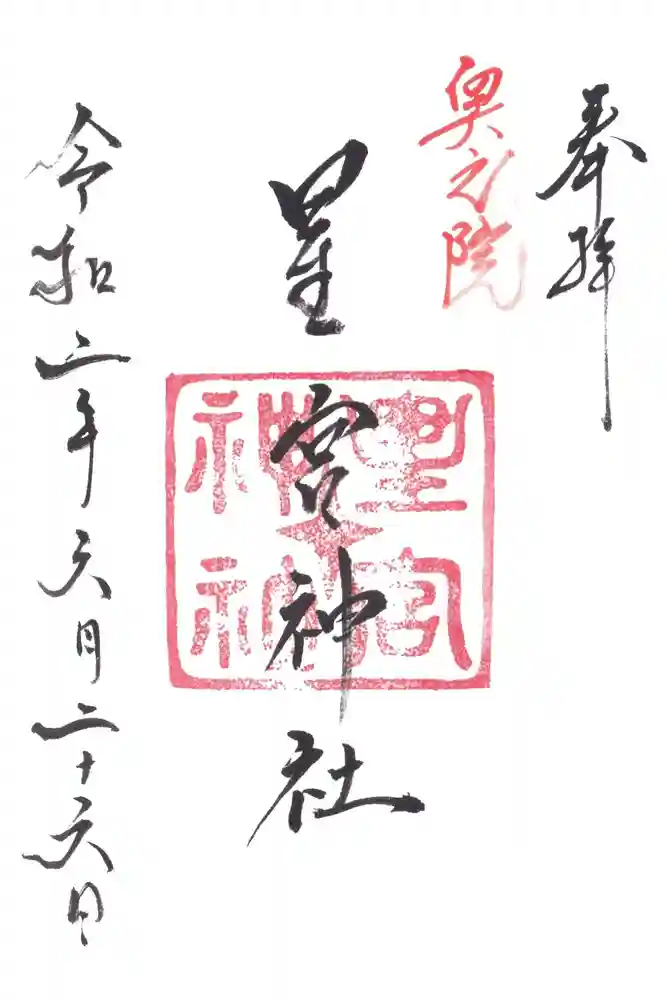 奉拝
奥之院
星宮神社
星宮
令和二年六月二十六日